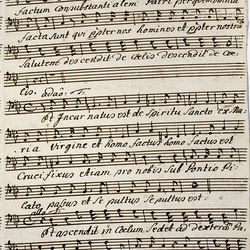 factum Consubstantialem Patri per quem omnia
facta sunt qui propter nos homines et propter nostra
Salutem descendit de Coelis descendit de Coe-
lis. Adao:
Et Incarnatus est de Spiritu Sancto ex Ma-
ria Virgine et homo factus homo factus est
Crucifixus etiam pro nobis Sub Pontio Pi-
lato passus et Sepultus Sepultus est.
allo
Et ascendit in Coelum Sedet ad dexteram Pa